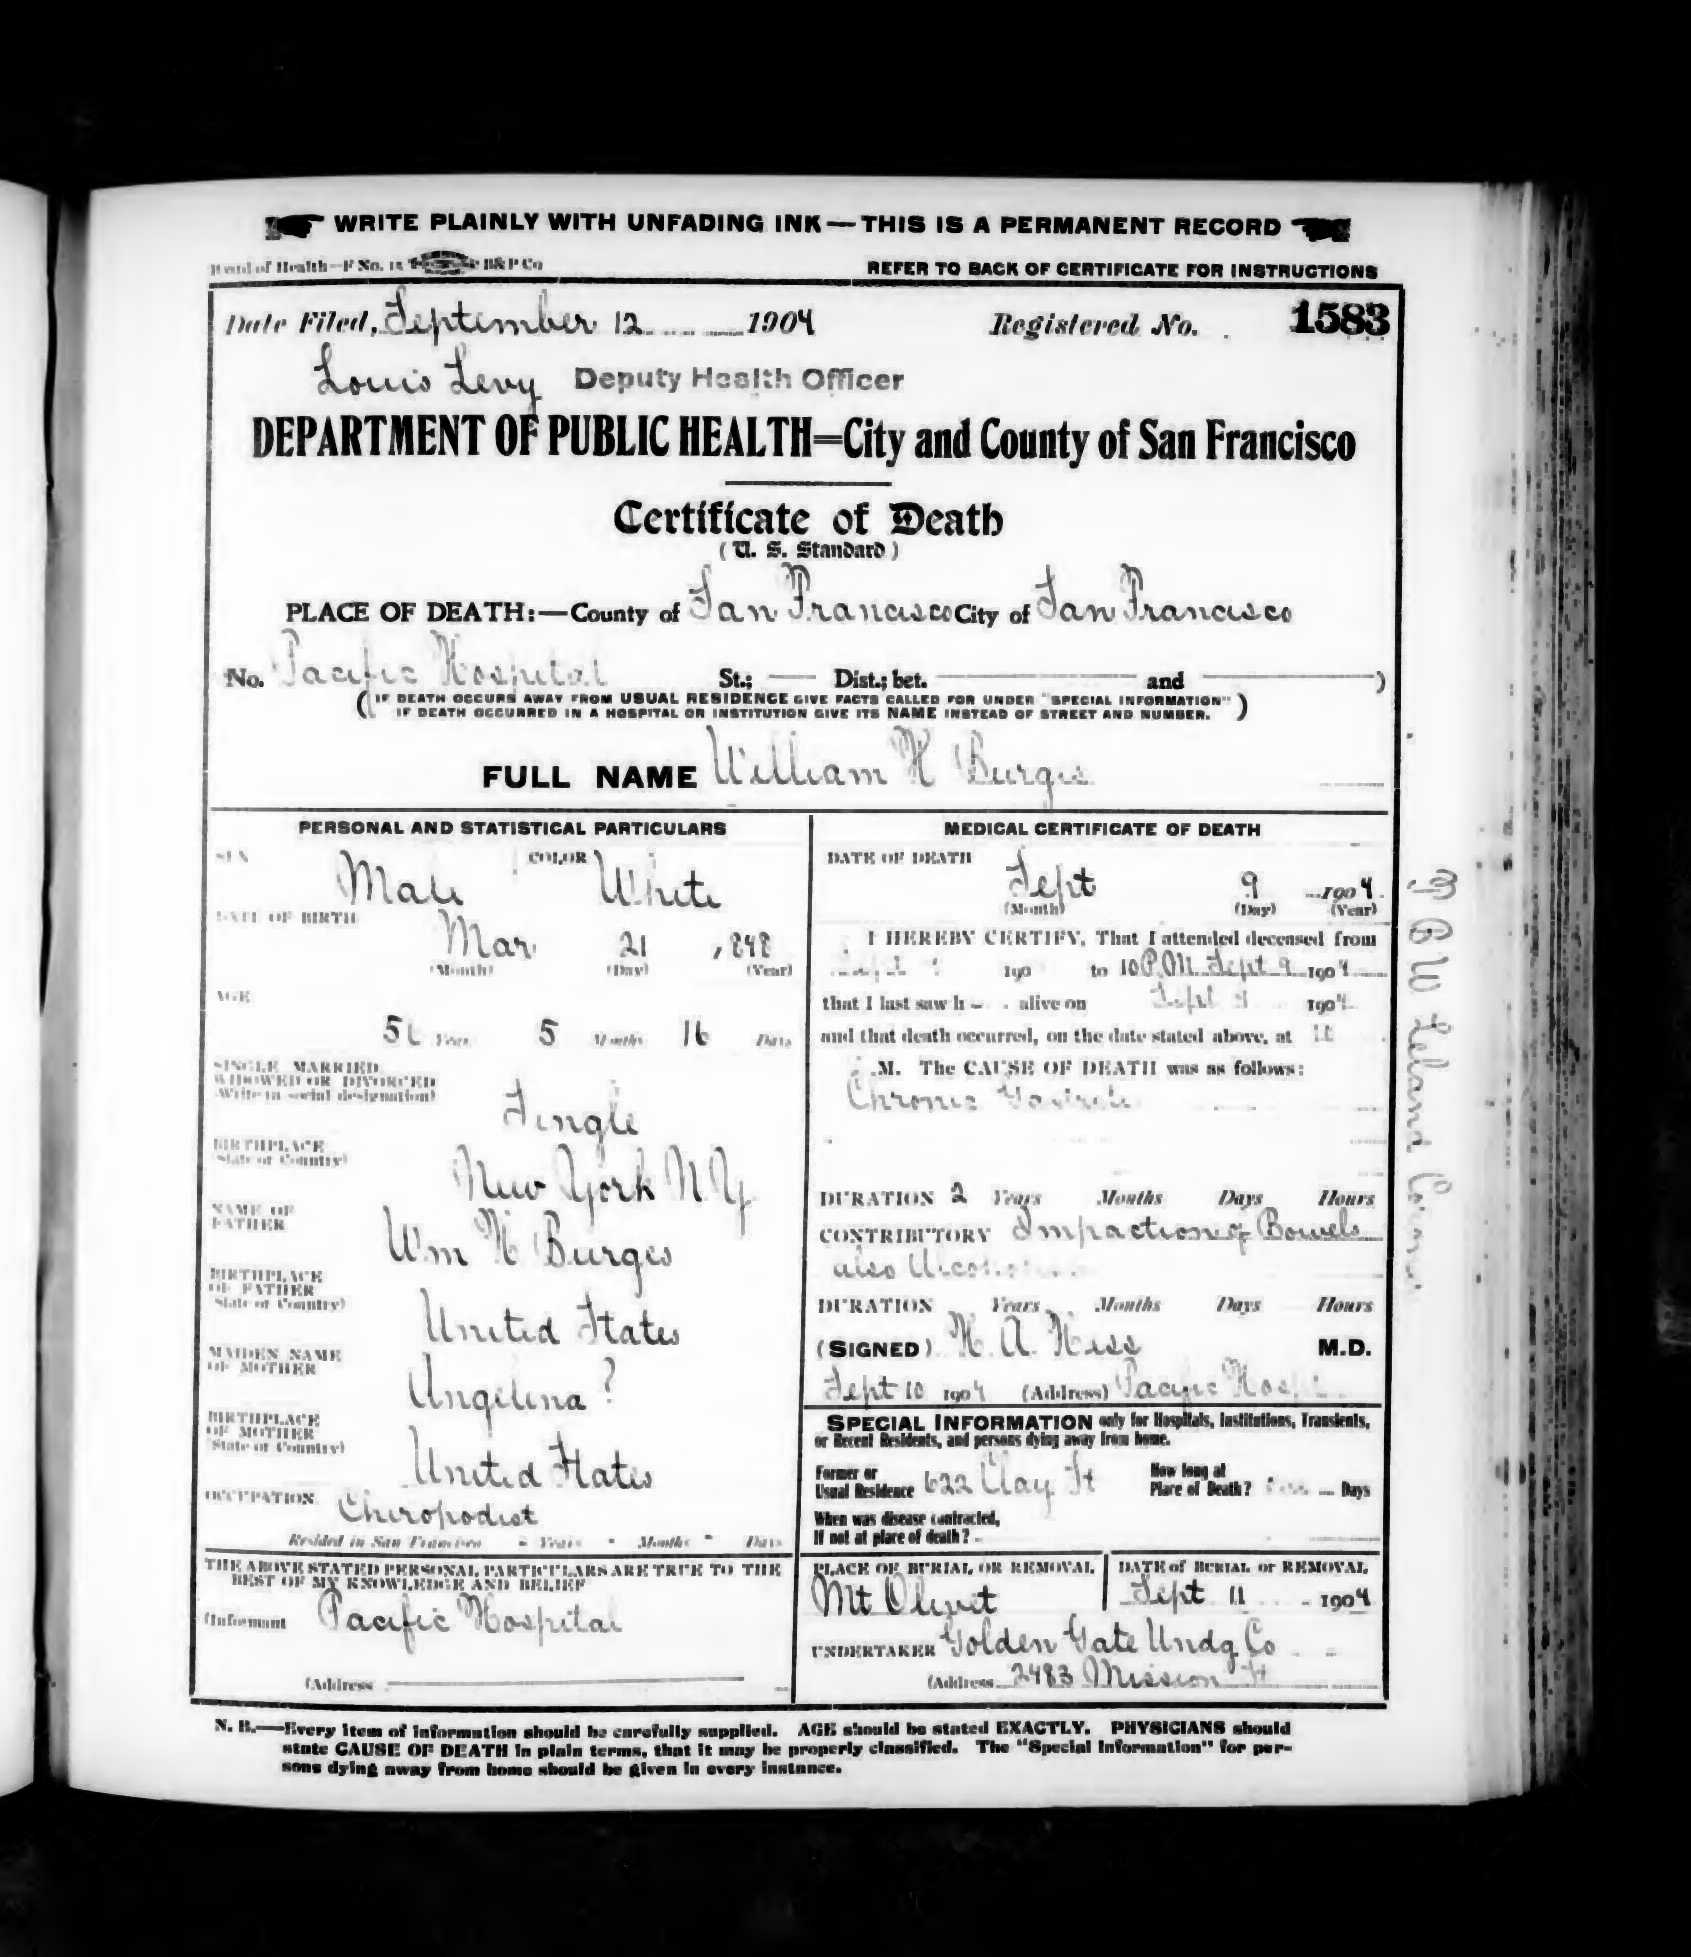 WRITE PLAINLY WITH UNFADING INK—THIS IS A PERMANENT RECORD
Board of Health—F No. 15 B&P Co
REFER TO BACK OF CERTIFICATE FOR INSTRUCTIONS
Date Filed, September 12 1904 Registered No. 1583
Louis Levy Deputy Health Officer
DEPARTMENT OF PUBLIC HEALTH=City and County of San Francisco
Certificate of Death
(U. S. Standard)
PLACE OF DEATH:—County of San Francisco City of San Francisco
No. Pacific Hospital St.; — Dist.; bet. — and —)
(IF DEATH OCCURS AWAY FROM USUAL RESIDENCE GIVE FACTS CALLED FOR UNDER "SPECIAL INFORMATION"
IF DEATH OCCURRED IN A HOSPITAL OR INSTITUTION GIVE ITS NAME INSTEAD OF STREET AND NUMBER.)
FULL NAME William H Burges
PERSONAL AND STATISTICAL PARTICULARS
SEX Male COLOR White
DATE OF BIRTH Mar 21, 848
(Month) (Day) (Year)
AGE
56 Years 5 Months 16 Days
SINGLE MARRIED,
WIDOWED OR DIVORCED
(Write in social designation)
Single
BIRTHPLACE
(State or Country)
New York N.Y.
NAME OF
FATHER
Wm H Burges
BIRTHPLACE
OF FATHER
(State or Country)
United States
MAIDEN NAME
OF MOTHER
Angelina ?
BIRTHPLACE
OF MOTHER
(State or Country)
United States
OCCUPATION Chiropodist
Resided in San Francisco - Years - Months - Days
THE ABOVE STATED PERSONAL PARTICULARS ARE TRUE TO THE
BEST OF MY KNOWLEDGE AND BELIEF
(Informant Pacific Hospital
(Address
MEDICAL CERTIFICATE OF DEATH
DATE OF DEATH
Sept 9 1904
(Month) (Day) (Year)
I HEREBY CERTIFY, That I attended deceased from
Sept 190 to 10 P.M. Sept 9 1904
that I last saw h alive on Sept 9 1904
and that death occurred, on the date stated above, at 10
M. The CAUSE OF DEATH was as follows:
Chronic Gastritis
DURATION 2 Years Months Days Hours
CONTRIBUTORY Impaction of Bowels
also
DURATION Years Months Days Hours
(SIGNED) H. A. Hess M.D.
Sept 10 1904 (Address) Pacific Hospt
SPECIAL INFORMATION only for Hospitals, Institutions, Transients,
or Recent Residents, and persons dying away from home.
Former or
Usual Residence 622 Clay St
How long at
Place of Death? Days
When was disease contracted,
If not at place of death? -
PLACE OF BURIAL OR REMOVAL
Mt Olivet
DATE of BURIAL or REMOVAL
Sept 11 1904
UNDERTAKER Golden Gate Undg Co
(Address 2483 Mission St
N. B.—Every item of information should be carefully supplied. AGE should be stated EXACTLY. PHYSICIANS should
state CAUSE OF DEATH in plain terms, that it may be properly classified. The "Special Information" for per-
sons dying away from home should be given in every instance.
B W Leland Coroner